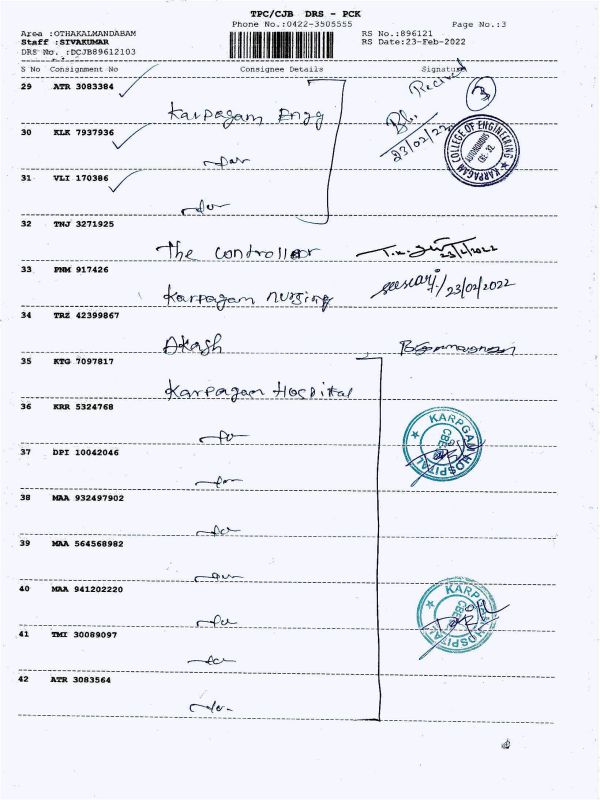 TPC/CJB DRS - PCK
Phone No.:0422-3505555 Page No.:3
Area :OTHAKALMANDABAM RS No.:896121
Staff :SIVAKUMAR RS Date:23-Feb-2022
DRS No. :DCJB89612103
S No Consignment No Consignee Details Signature
29 ATR 3083384 Received 3
Karpagam Engg
23/02/22
KARPAGAM COLLEGE OF ENGINEERING
AUTONOMOUS
CBE. 32.
30 KLK 7937936
31 VLI 170386
32 TNJ 3271925
The controller 23/2/2022
33 PNM 917426
Karpagam nursing 23/02/2022
34 TRZ 42399867
Akash
35 KTG 7097817
Karpagam Hospital
36 KRR 5324768
KARPGAM HOSPITAL
CBE
37 DPI 10042046
38 MAA 932497902
39 MAA 564568982
40 MAA 941202220
KARPGAM HOSPITAL
CBE
41 TMI 30089097
42 ATR 3083564